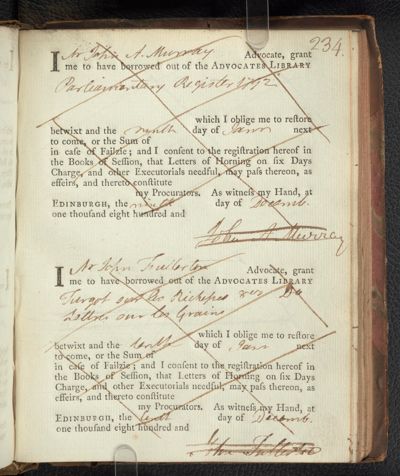 234.
I Mr John A. Murray Advocate, grant
me to have borrowed out of the ADVOCATES LIBRARY
Parliamentary Register
which I oblige me to reſtore
betwixt and the ninth day of Janry next
to come, or the Sum of
in caſe of Failzie; and I conſent to the regiſtration hereof in
the Books of Seſſion, that Letters of Horning on ſix Days
Charge, and other Executorials needful, may paſs thereon, as
effeirs, and thereto conſtitute
my Procurators. As witneſs my Hand, at
EDINBURGH, the ninth day of Decemb.
one thouſand eight hundred and
John A. Murray
I Mr John Fullerton Advocate, grant
me to have borrowed out of the ADVOCATES LIBRARY
Turgot sur les Richesses Do
Lettres sur les Grains
which I oblige me to reſtore
betwixt and the tenth day of Janr next
to come, or the Sum of
in caſe of Failzie; and I conſent to the regiſtration hereof in
the Books of Seſſion, that Letters of Horning on ſix Days
Charge, and other Executorials needful, may paſs thereon, as
effeirs, and thereto conſtitute
my Procurators. As witneſs my Hand, at
EDINBURGH, the tenth day of Decemb.
one thouſand eight hundred and
John Fullerton